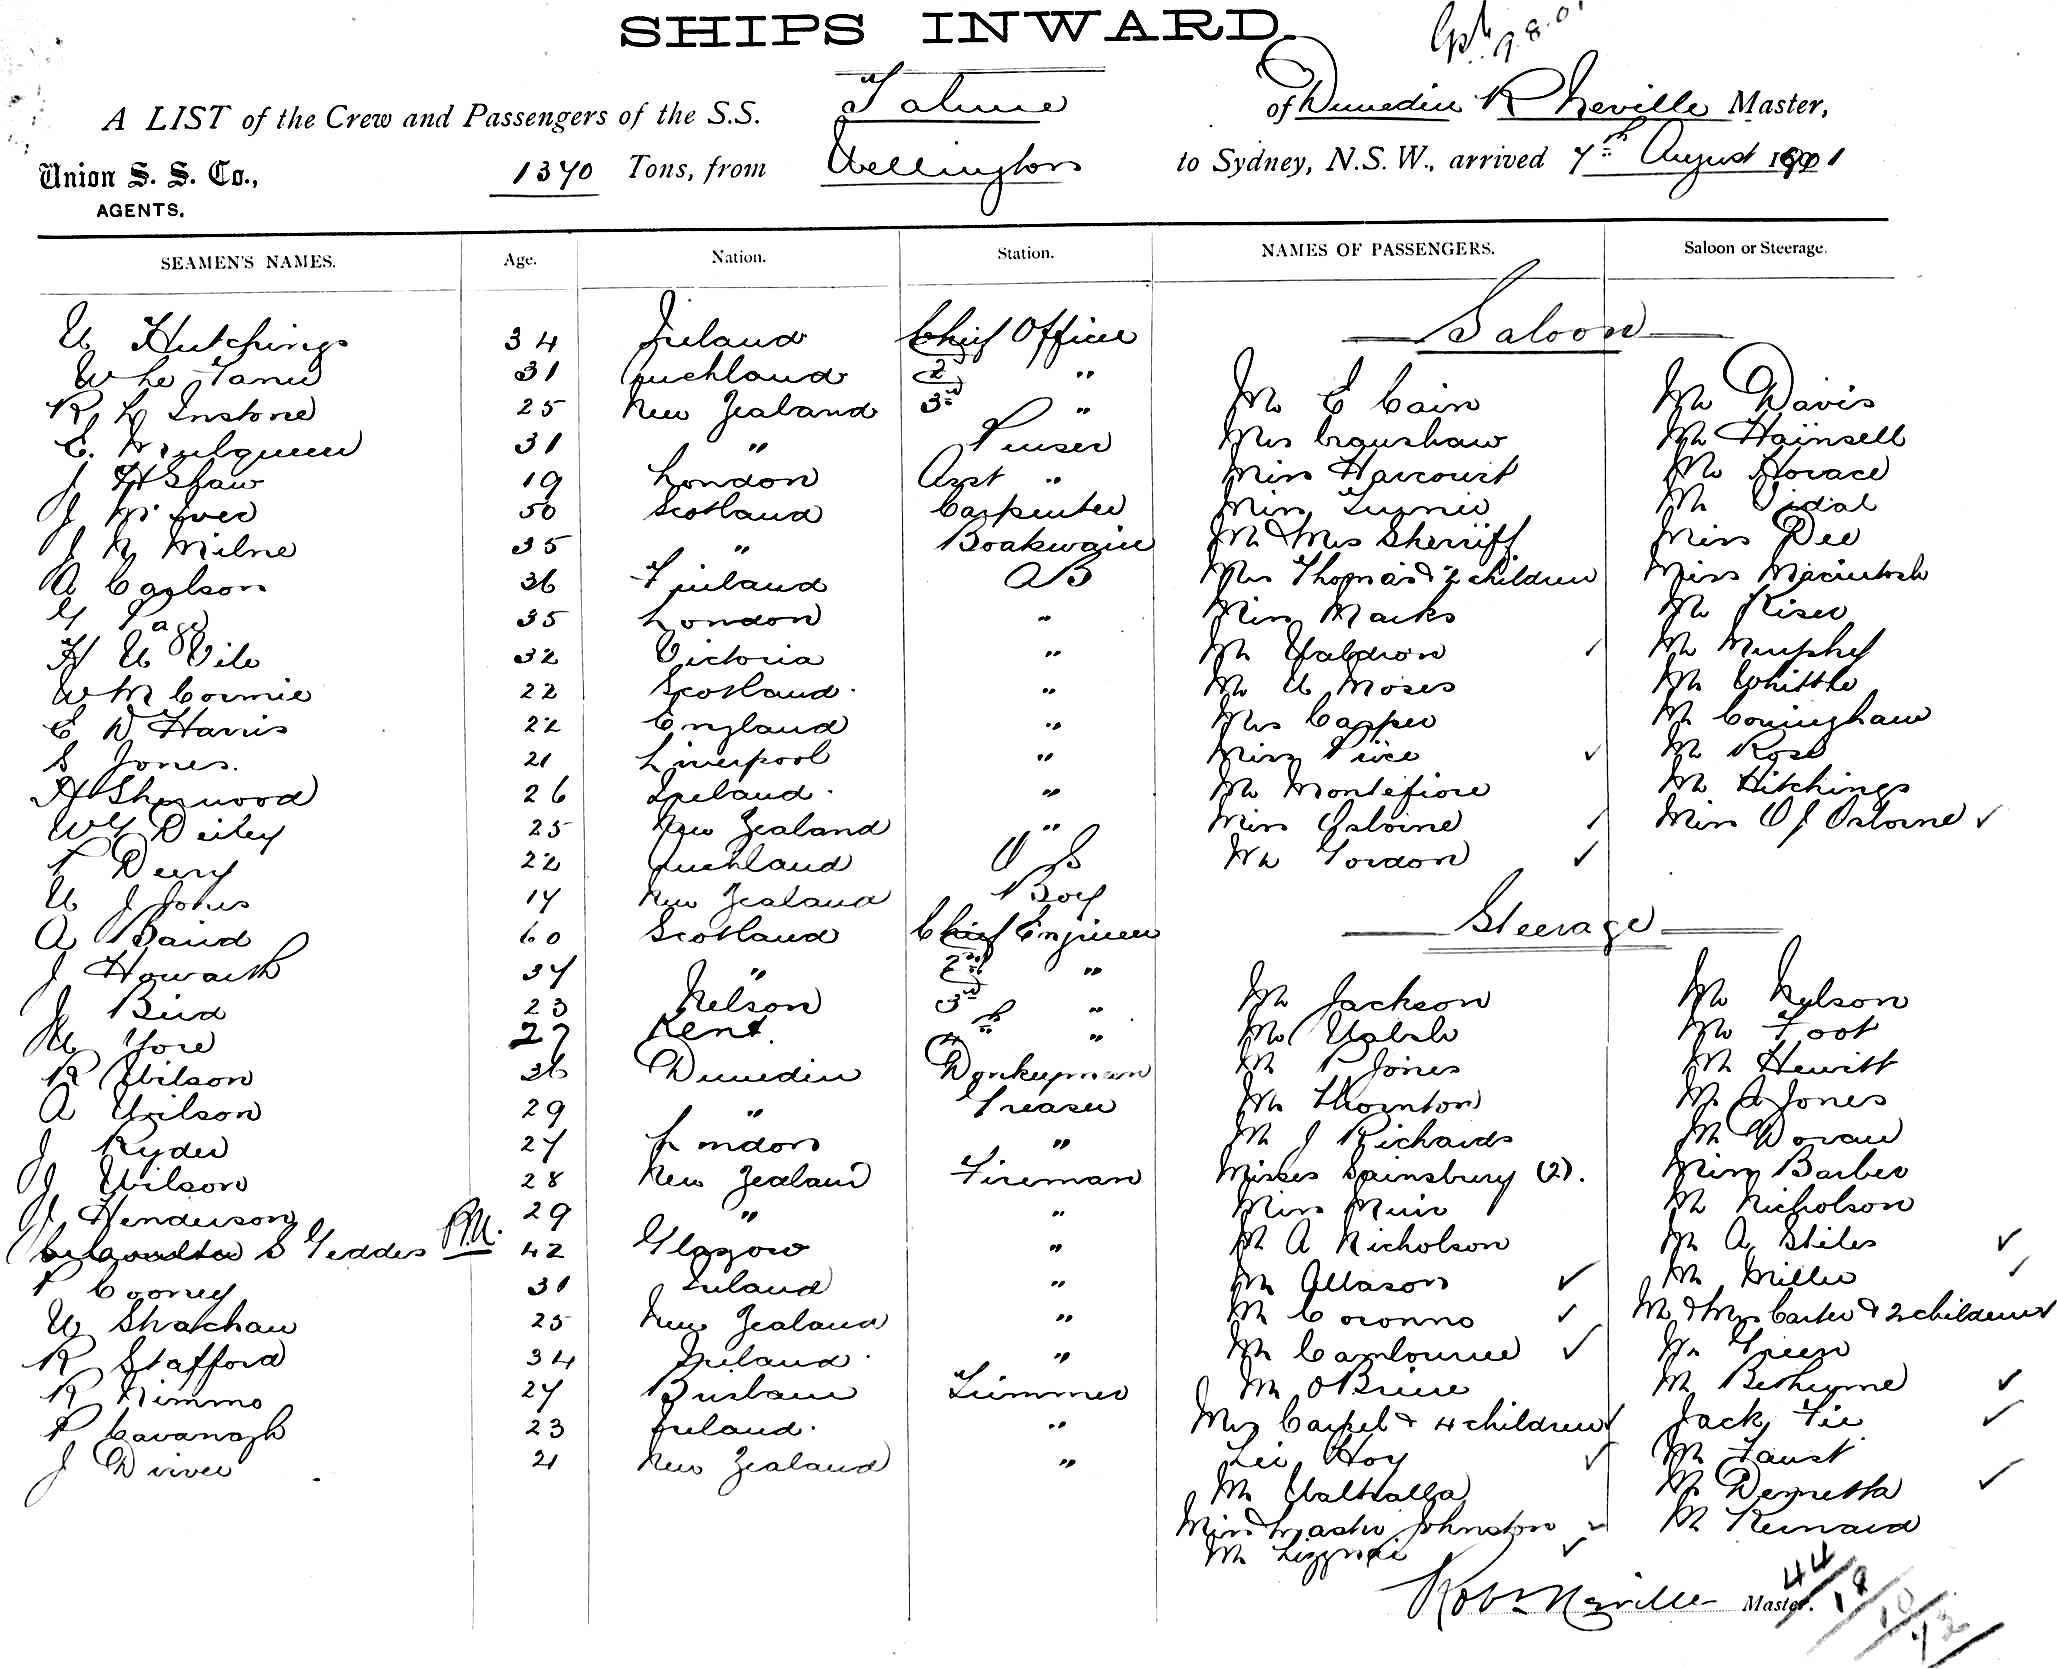 SHIPS INWARD.
A LIST of the Crew and Passengers of the S.S. Talune of Dunedin R Neville Master,
Union S. S. Co., AGENTS. 1370 Tons, from Wellington to Sydney, N.S.W., arrived 7th August 1901
SEAMEN'S NAMES. Age. Nation. Station. NAMES OF PASSENGERS. Saloon or Steerage.
Saloon
W Hutchings 34 Ireland Chief Officer
31 Auckland 2nd "
R L Instone 25 New Zealand 3rd " Mr E Cain Mr Davis
E. Mulqueen 31 " Purser Mrs Craushaw Mr Hainsell
J H Shaw 19 London Asst " Miss Harcourt Mr Horace
J 50 Scotland Carpenter Miss Mr Vidal
J N Milne 35 " Boatswain Mr & Mrs Sherriff Miss Dee
A Carlson 36 Finland AB Mrs Thomas & 2 children Miss Macintosh
G Page 35 London " Miss Marks Mr Riser
H W Vile 32 Victoria " Mr Waldron Mr Murphy
W McCormie 22 Scotland " Mr W Moses Mr Whittle
E D Harris 22 England " Mrs Capper Mr Coningham
S Jones. 21 Liverpool " Miss Price Mr Rose
H Sherwood 26 Ireland " Mr Montefiore Mr Hitchings
W G Deiley 25 New Zealand " Miss Osborne Miss O J Osborne
Derry 22 Auckland OS Mr Gordon
W J Johns 17 New Zealand Boy
A Baird 60 Scotland Chief Engineer
Steerage
J Howarth 37 " 2nd "
J Bird 23 Nelson 3rd " Mr Jackson Mr Nelson
W Yore 27 Kent. 4th " Mr Walsh Mr Foot
R Wilson 36 Dunedin Donkeyman Mr P Jones Mr Hewitt
A Wilson 29 " Greaser Mr Thornton Mr J Jones
J Ryder 27 London " Mr J Richards Mr Doran
J Wilson 28 New Zealand Fireman Misses Sainsbury (2). Miss Barber
J Henderson 29 " " Miss Muir Mr Nicholson
S Geddes R.N. 42 Glasgow " Mr A Nicholson Mr A Stiles
P Cooney 31 Ireland " Mr Allason Mr Miller
W Strachan 25 New Zealand " Mr Coronno Mr & Mrs Carter & 2 children
R Stafford 34 Ireland " Mr Cambourne Mr Green
R Nimmo 27 Brisbane Trimmer Mr OBrien Mr Bethune
P Cavanagh 23 Ireland " Mrs & 4 children Jack Fie
J Driver 21 New Zealand " Lee Hoy Mr Faust
Mr Walhalla Mr Demetta
Miss & Master Johnston Mr Kennard
Mr
Robt Neville Master.
44
18
10
72